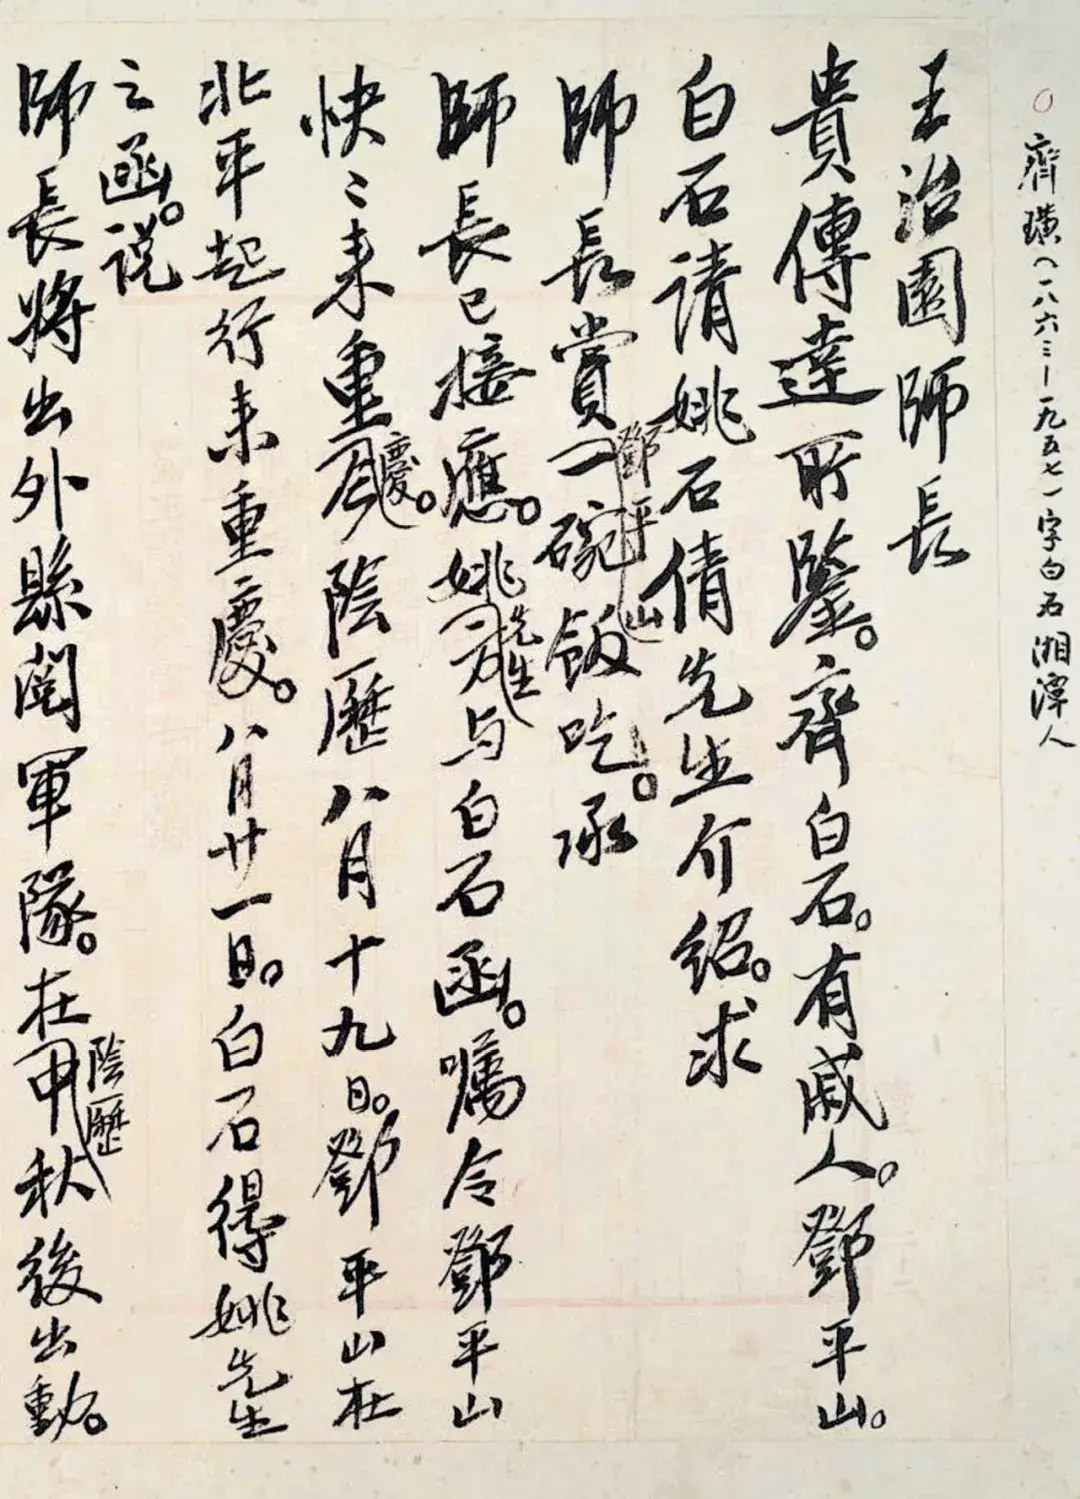 齊璜（一八六三—一九五七）字白石湘潭人
王治園師長
貴傳達所鑒。齊白石。有戚人。鄧平山。
白石請姚石倩先生介紹。求
師長賞鄧平山一碗飯吃。承
師長已接應。姚先生与白石函。囑令鄧平山
快〻来重慶。陰歷八月十九日。鄧平山在
北平起行来重慶。八月廿一日。白石得姚先生
之函。说
師長將出外縣閱軍隊。在陰歷秋後出動。